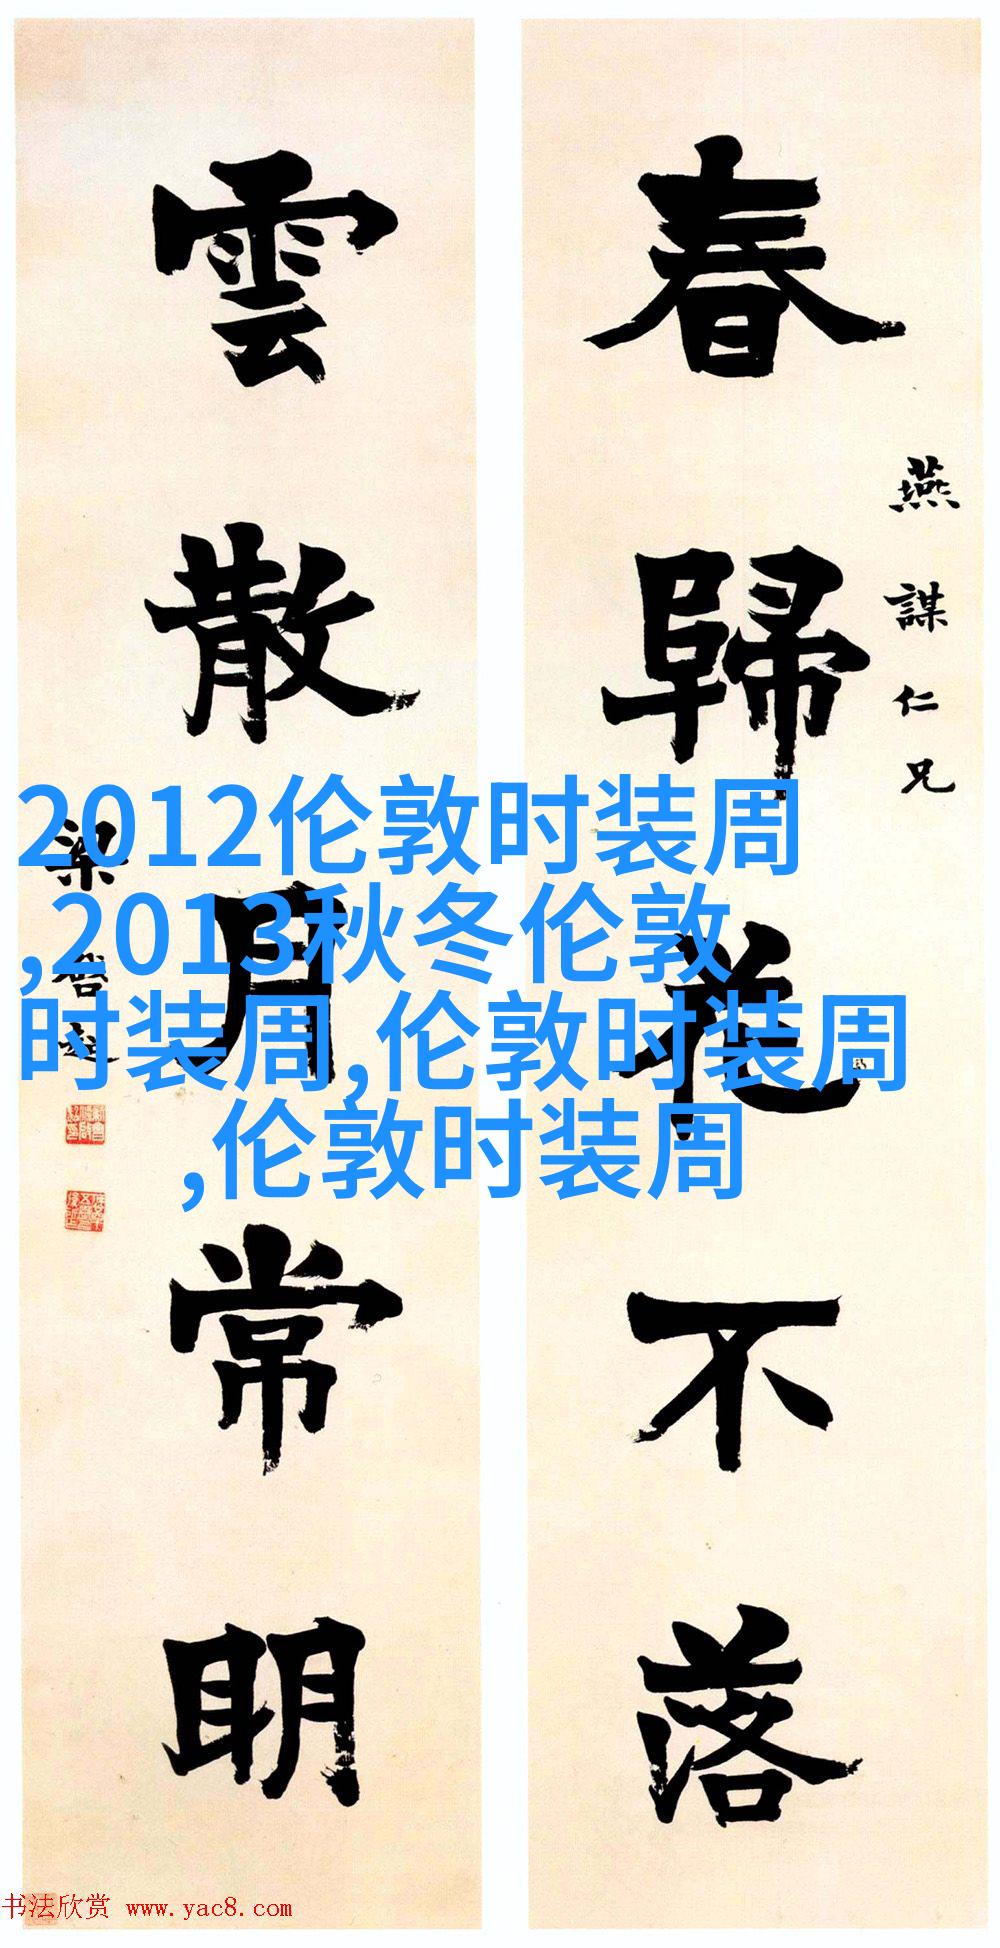 春歸花不落
燕謀仁兄
雲散月常明
梁啓超
2012伦敦时装周
,2013秋冬伦敦
时装周,伦敦时装周
,伦敦时装周
书法欣赏 www.yac8.com